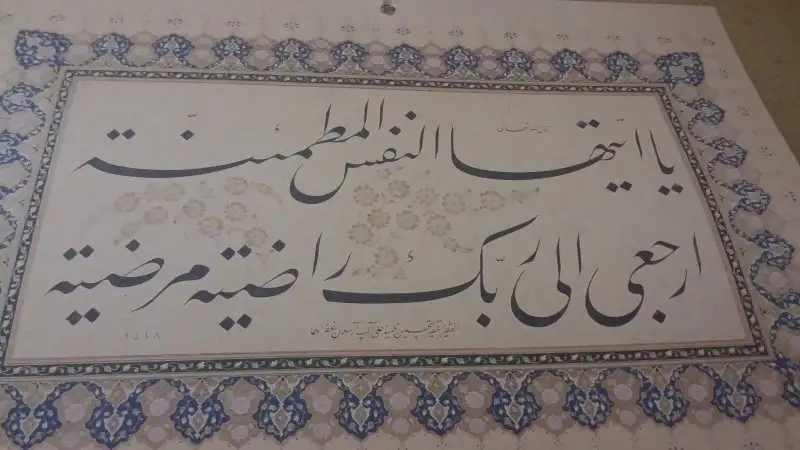 قال الله تعالى
يا ايتها النفس المطمئنة
ارجعى الى ربّك راضية مرضية
١٤١٨